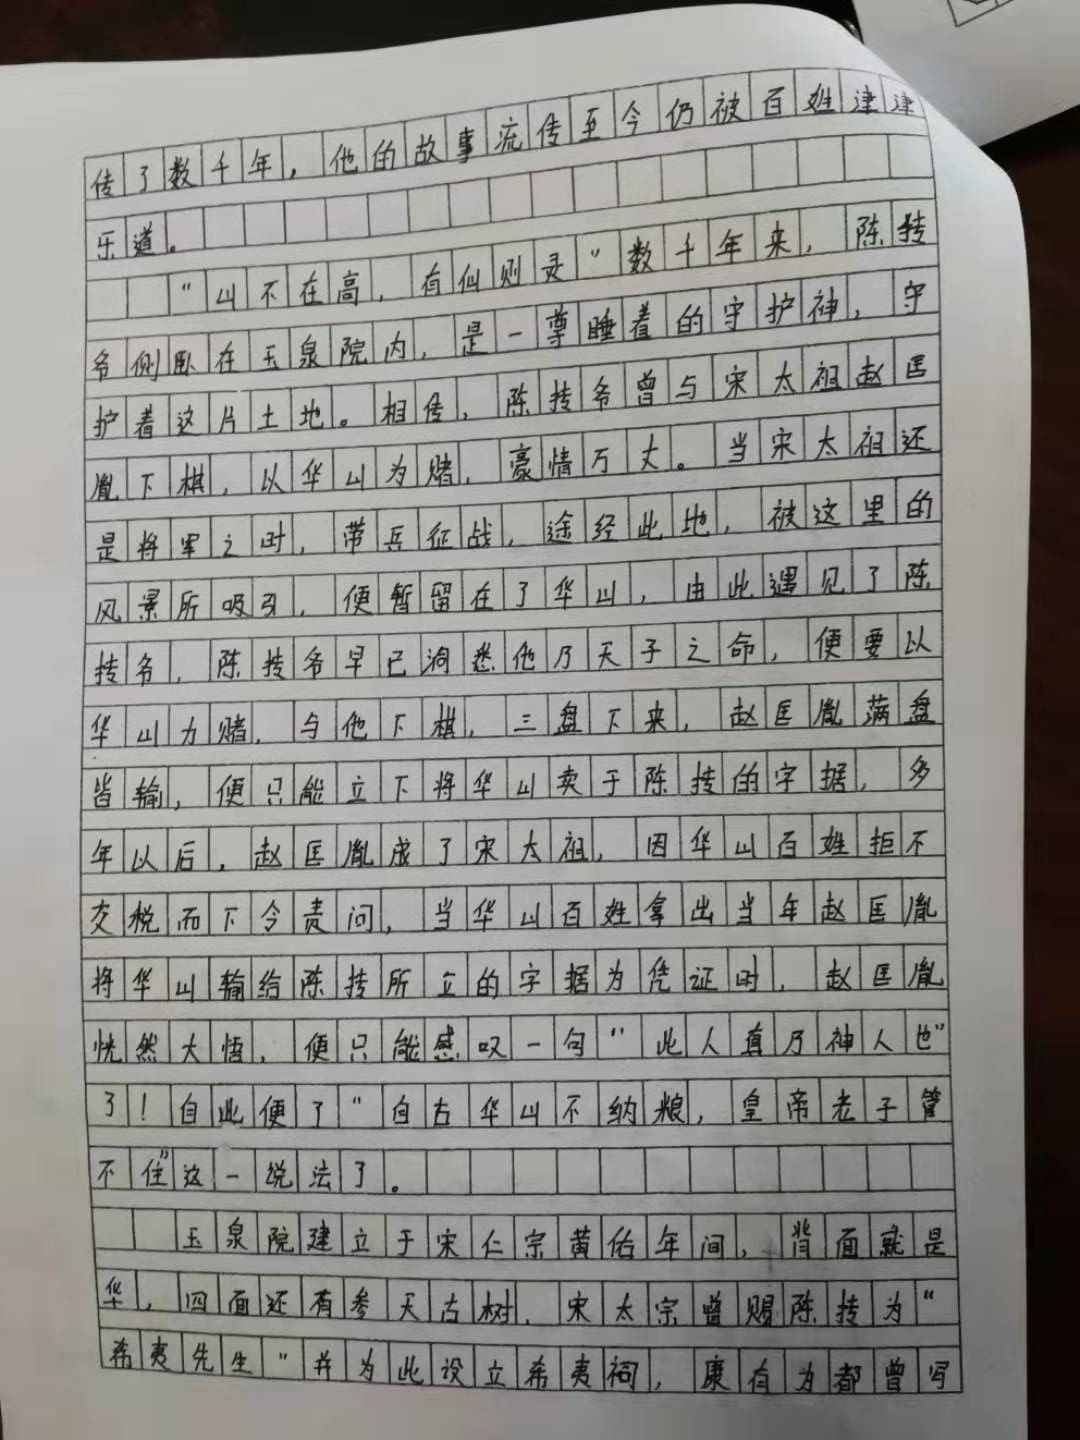 传了数千年，他的故事流传至今仍被百姓津津
乐道。
"山不在高，有仙则灵"数千年来，陈抟
爷侧卧在玉泉院内，是一尊睡着的守护神，守
护着这片土地。相传，陈抟爷曾与宋太祖赵匡
胤下棋，以华山为赌，豪情万丈。当宋太祖还
是将军之时，带兵征战，途经此地，被这里的
风景所吸引，便暂留在了华山，由此遇见了陈
抟爷，陈抟爷早已洞悉他乃天子之命，便要以
华山为赌，与他下棋，三盘下来，赵匡胤满盘
皆输，便只能立下将华山卖于陈抟的字据，多
年以后，赵匡胤成了宋太祖，因华山百姓拒不
交税而下令责问，当华山百姓拿出当年赵匡胤
将华山输给陈抟所立的字据为凭证时，赵匡胤
恍然大悟，便只能感叹一句"此人真乃神人也"
了！自此便了"自古华山不纳粮，皇帝老子管
不住"这一说法了。
玉泉院建立于宋仁宗黄佑年间，背面就是
华，四面还有参天古树，宋太宗曾赐陈抟为"
希夷先生"并为此设立希夷祠，康有为都曾写